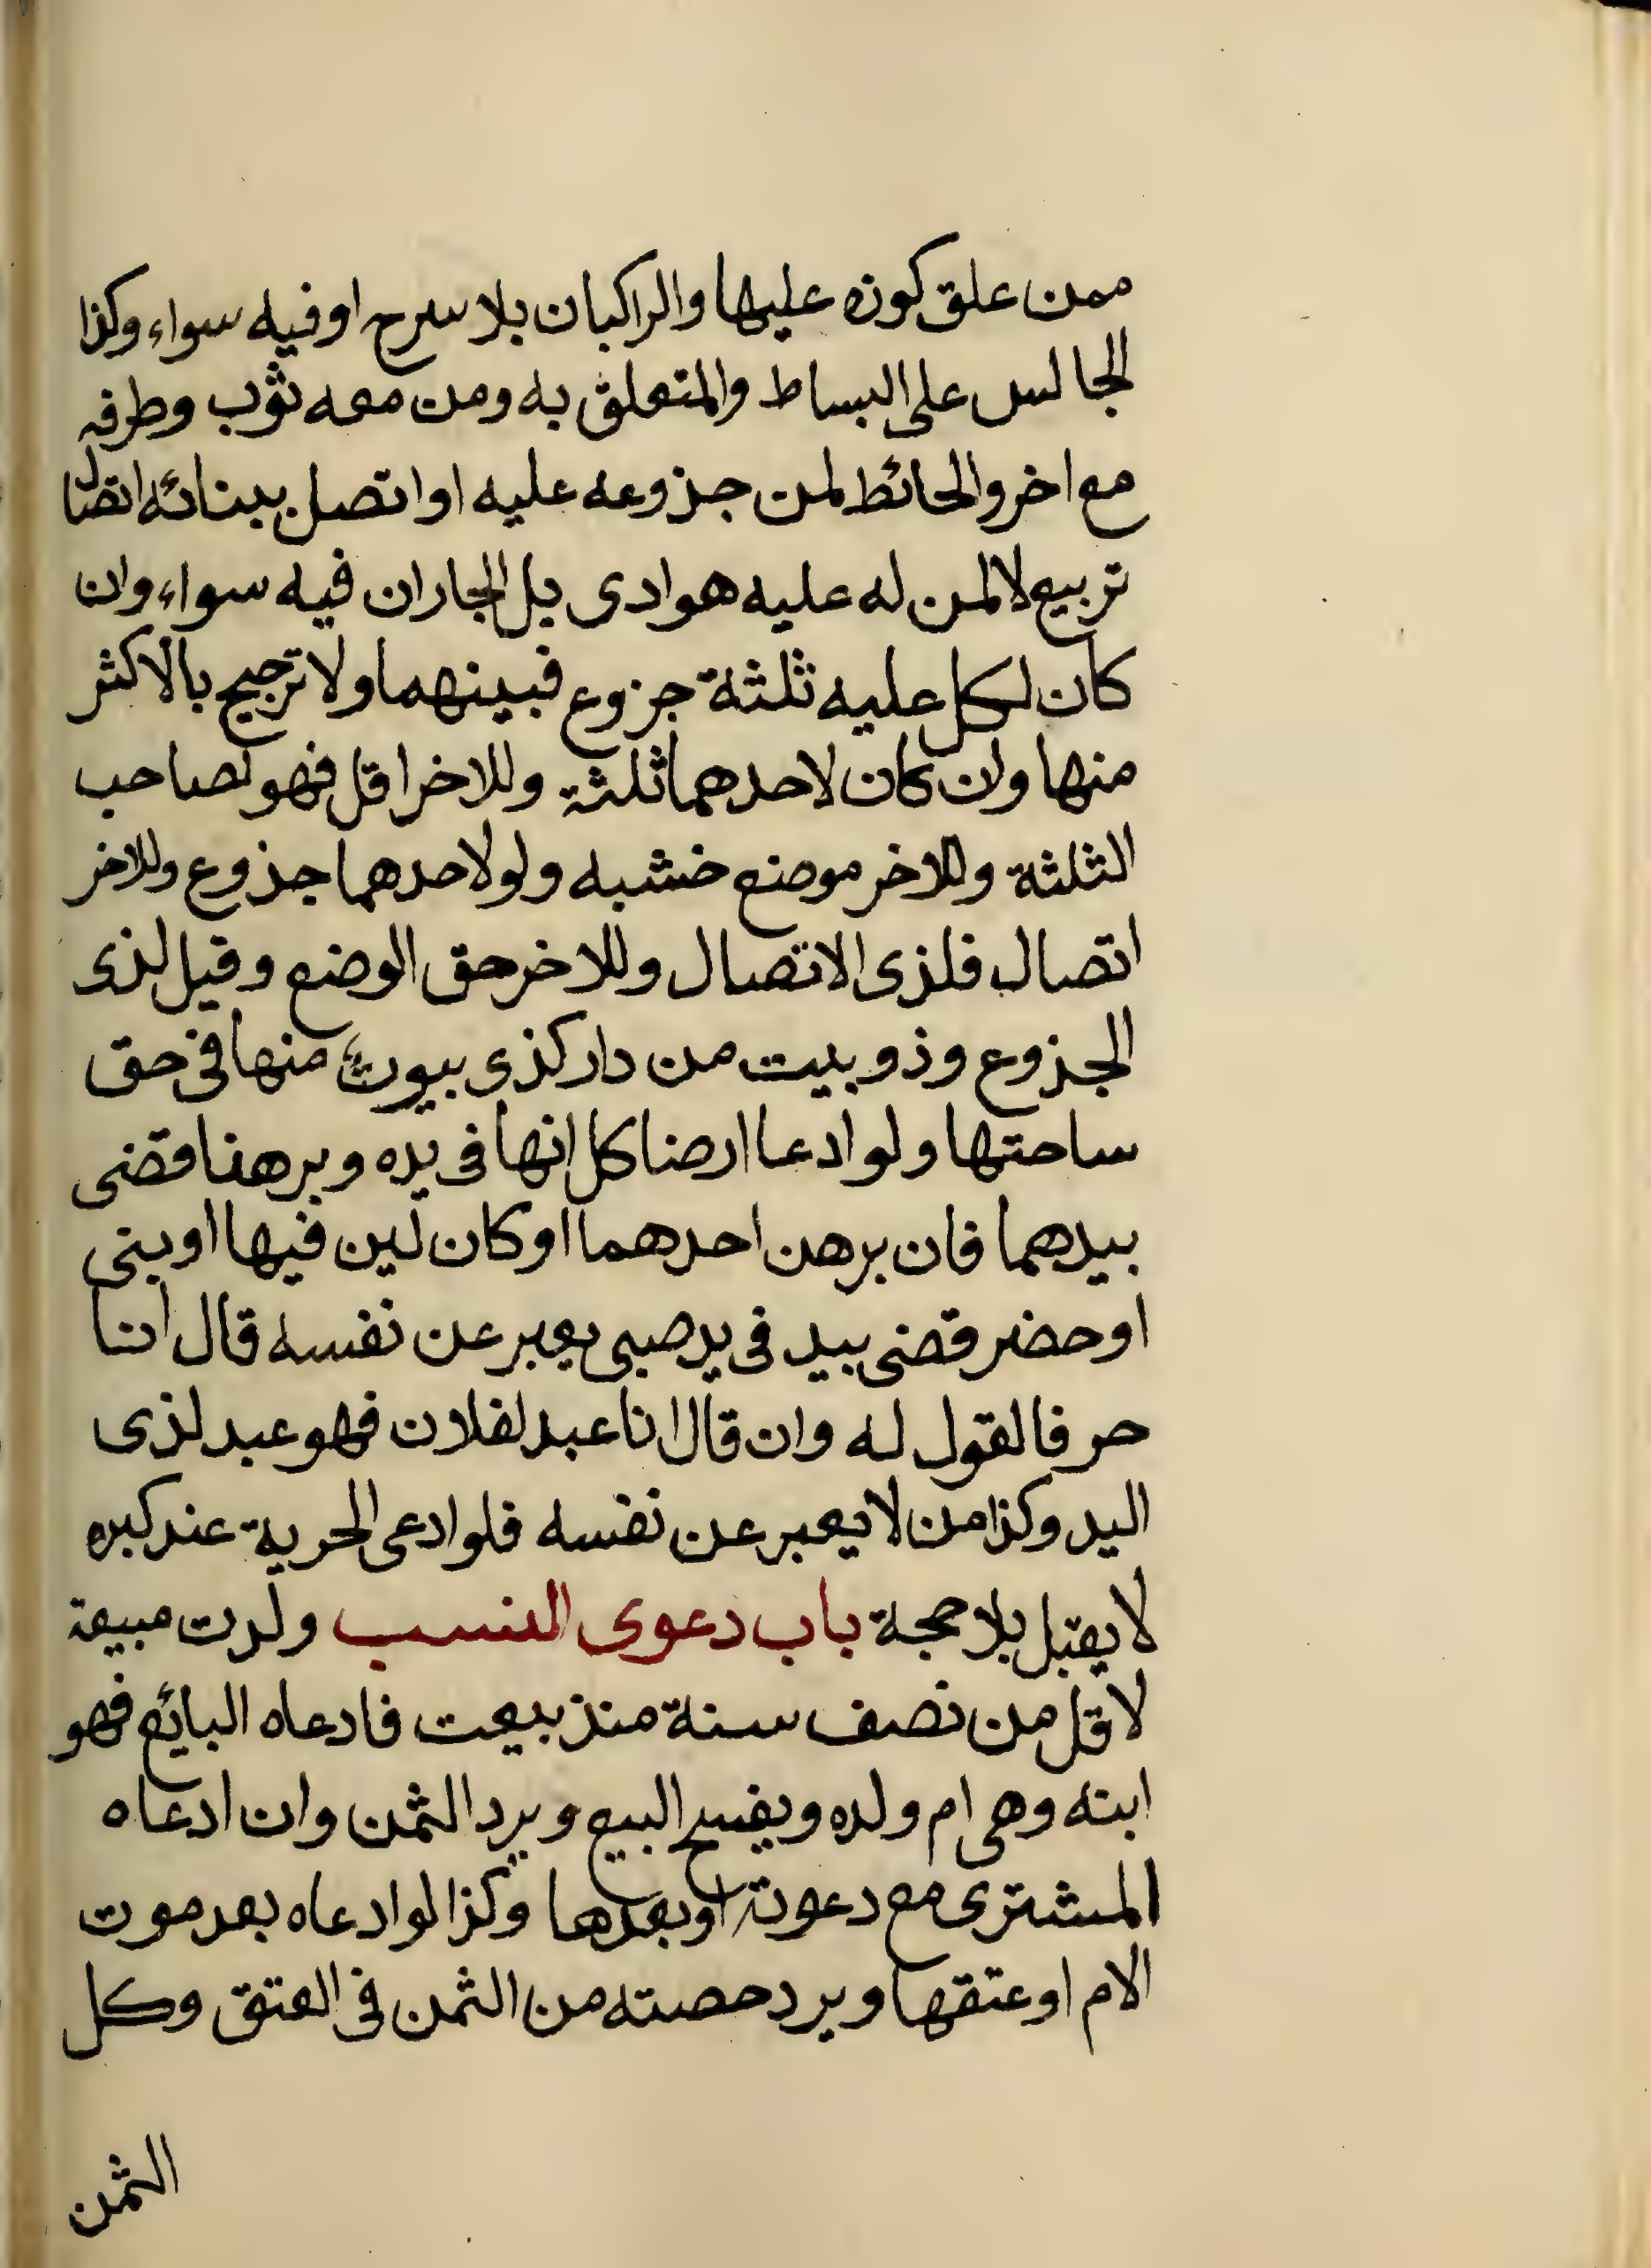 ممن علق كوزه عليها والراكبان بلا سرج او فيه سواء وكذا
الجالس على البساط والمتعلق به ومن معه ثوب وطرفه
مع اخر والحائط لمن جذوعه عليه او اتصل ببنائه اتصال
تربيع لا لمن له عليه هوادى بل الجاران فيه سواء وان
كان لكل عليه ثلثة جزوع فبينهما ولا ترجيح بالاكثر
منها وان كان لاحدهما ثلثة وللاخر اقل فهو لصاحب
الثلثة وللاخر موضع خشبه ولو لاحدهما جذوع وللاخر
اتصال فلذى الاتصال وللاخر حق الوضع وقيل لذى
الجذوع وذو بيت من دار كذى بيوت منها فى حق
ساحتها ولو ادعا ارضا كل انها فى يده وبرهنا قضى
بيدهما فان برهن احدهما او كان لبن فيها او بنى
او حضر قضى بيد فى يد صبى يعبر عن نفسه قال انا
حر فالقول له وان قال انا عبد لفلان فهو عبد لذى
اليد وكذا من لا يعبر عن نفسه فلو ادعى الحرية عند كبره
لا يقبل بلا حجة باب دعوى النسب ولدت مبيعة
لاقل من نصف سنة منذ بيعت فادعاه البائع فهو
ابنه وهى ام ولده ويفسخ البيع ويرد الثمن وان ادعاه
المشترى مع دعوته او بعدها وكذا لو ادعاه بعد موت
الام او عتقها ويرد حصته من الثمن فى العتق وكل
الثمن